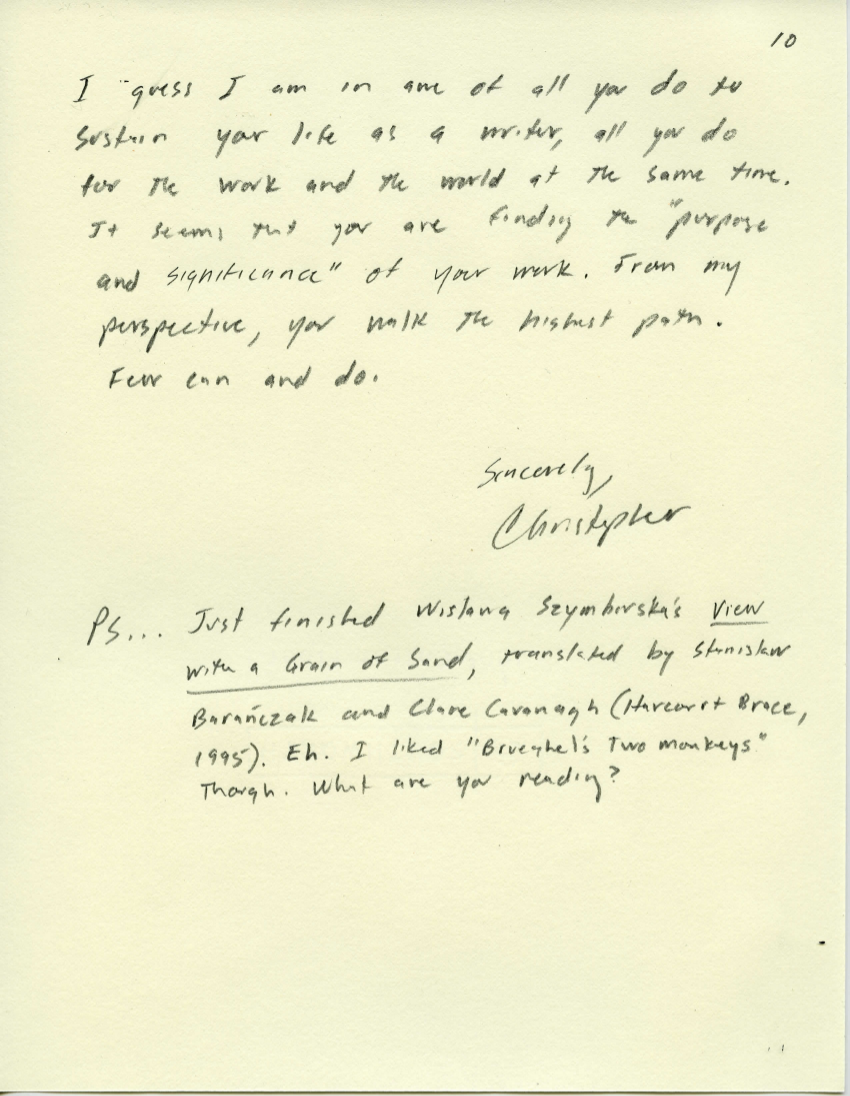 10
I guess I am in awe of all you do to
sustain your life as a writer, all you do
for the work and the world at the same time.
It seems that you are finding the "purpose
and significance" of your work. From my
perspective, you walk the highest path.
Few can and do.
Sincerely,
Christopher
PS... Just finished Wislawa Szymborska's View
with a Grain of Sand, translated by Stanislaw
Barańczak and Clare Cavanagh (Harcourt Brace,
1995). Eh. I liked "Brueghel's Two monkeys"
Though. What are you reading?